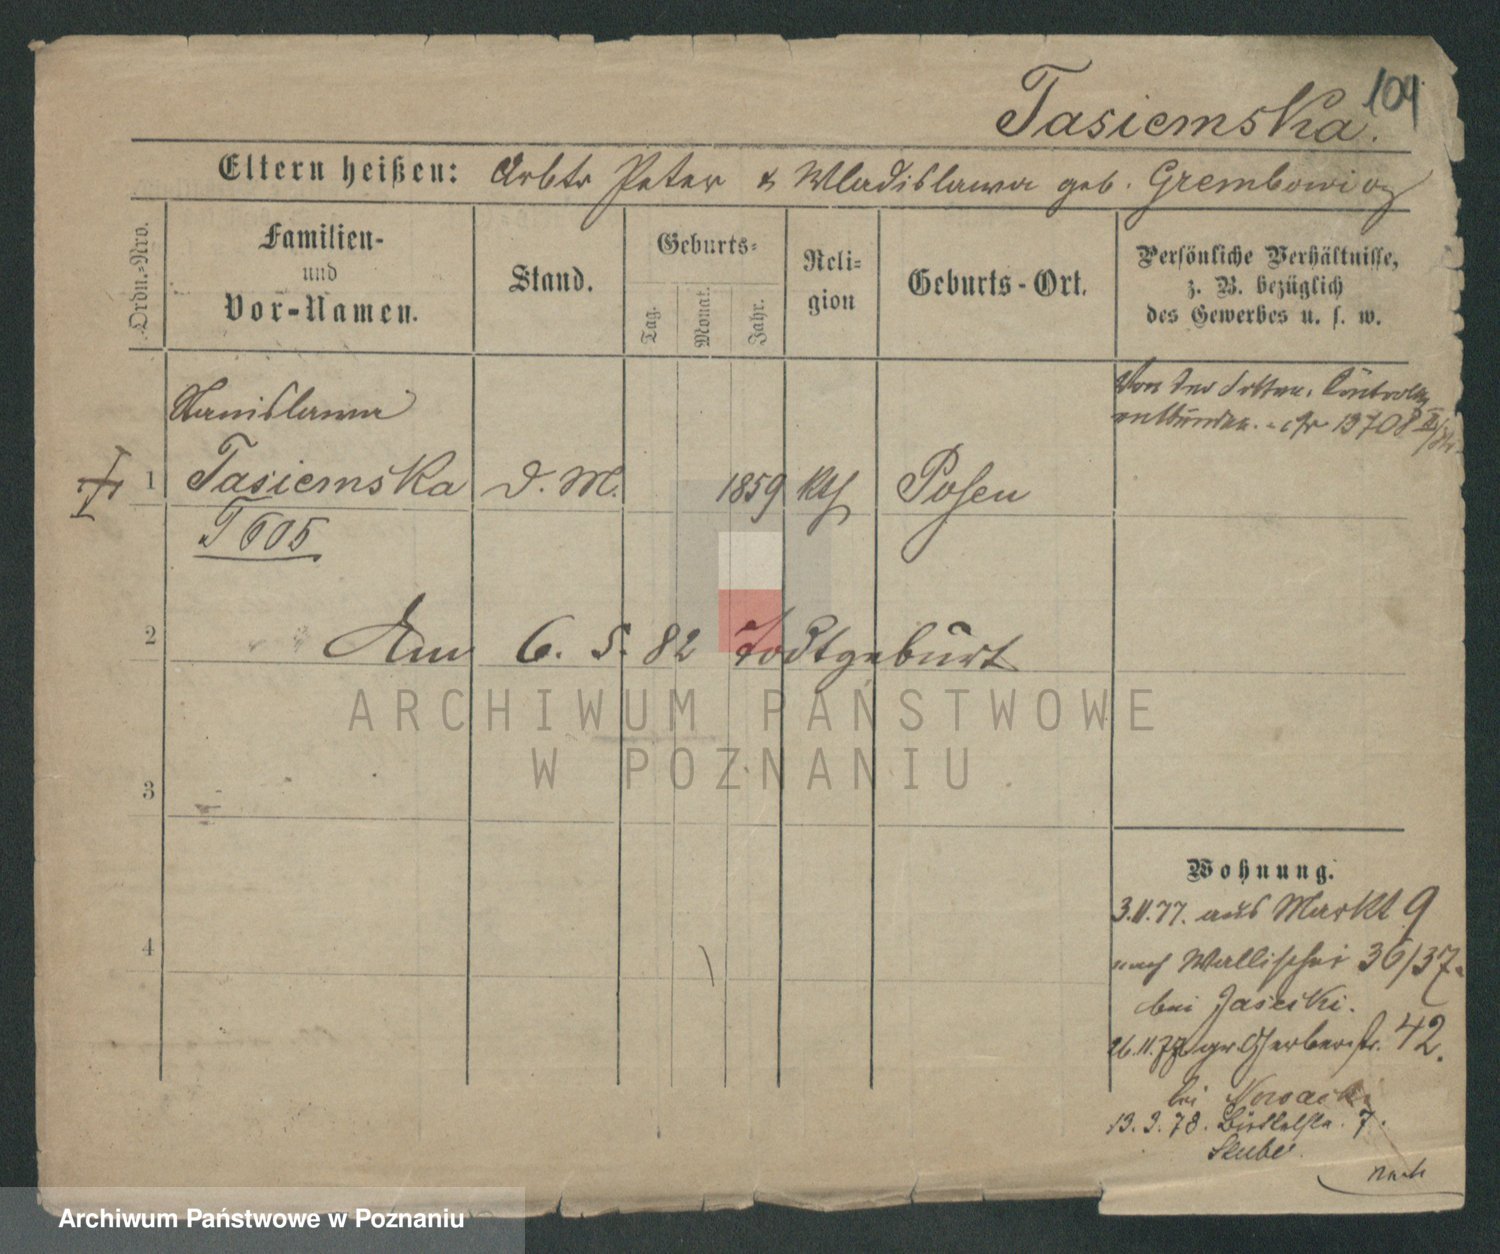 104
Tasiemska.
Eltern heißen: Arbtr Peter & Wladislawa geb. Grembowicz
Ordn.-Nro.
Familien-
und
Vor-Namen.
Stand.
Geburts-
Tag.
Monat.
Jahr.
Reli-
gion
Geburts-Ort.
Persönliche Verhältnisse,
z. B. bezüglich
des Gewerbes u. s. w.
Von der Sitten Controlle
entbunden. 13708
Stanislawa
1 Tasiemska d. M. 1859 Kth Posen
T 605
2 Am 6. 5. 82 Todtgeburt
3
4
Wohnung.
3.11.77. aus Markt 9
nach Wallischei 36/37.
bei Jasecki.
26.11.77 gr. Gerberstr. 42.
bei Nowack
13. 3. 78. Büttelstr. 7.
Stube
nach
ARCHIWUM PAŃSTWOWE
W POZNANIU
Archiwum Państwowe w Poznaniu